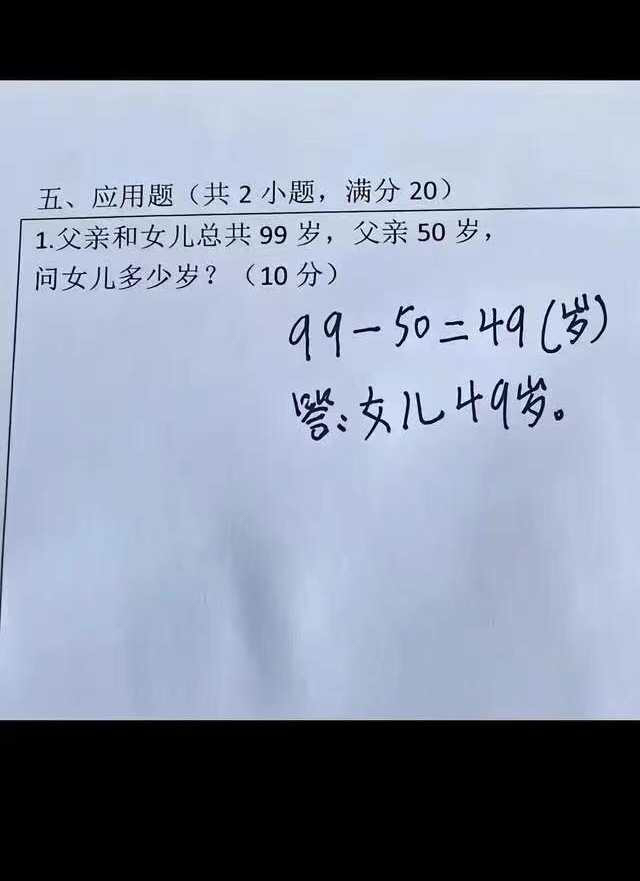 五、应用题（共 2 小题，满分 20）
1.父亲和女儿总共 99 岁，父亲 50 岁，
问女儿多少岁？（10 分）
99－50＝49(岁)
答：女儿49岁。